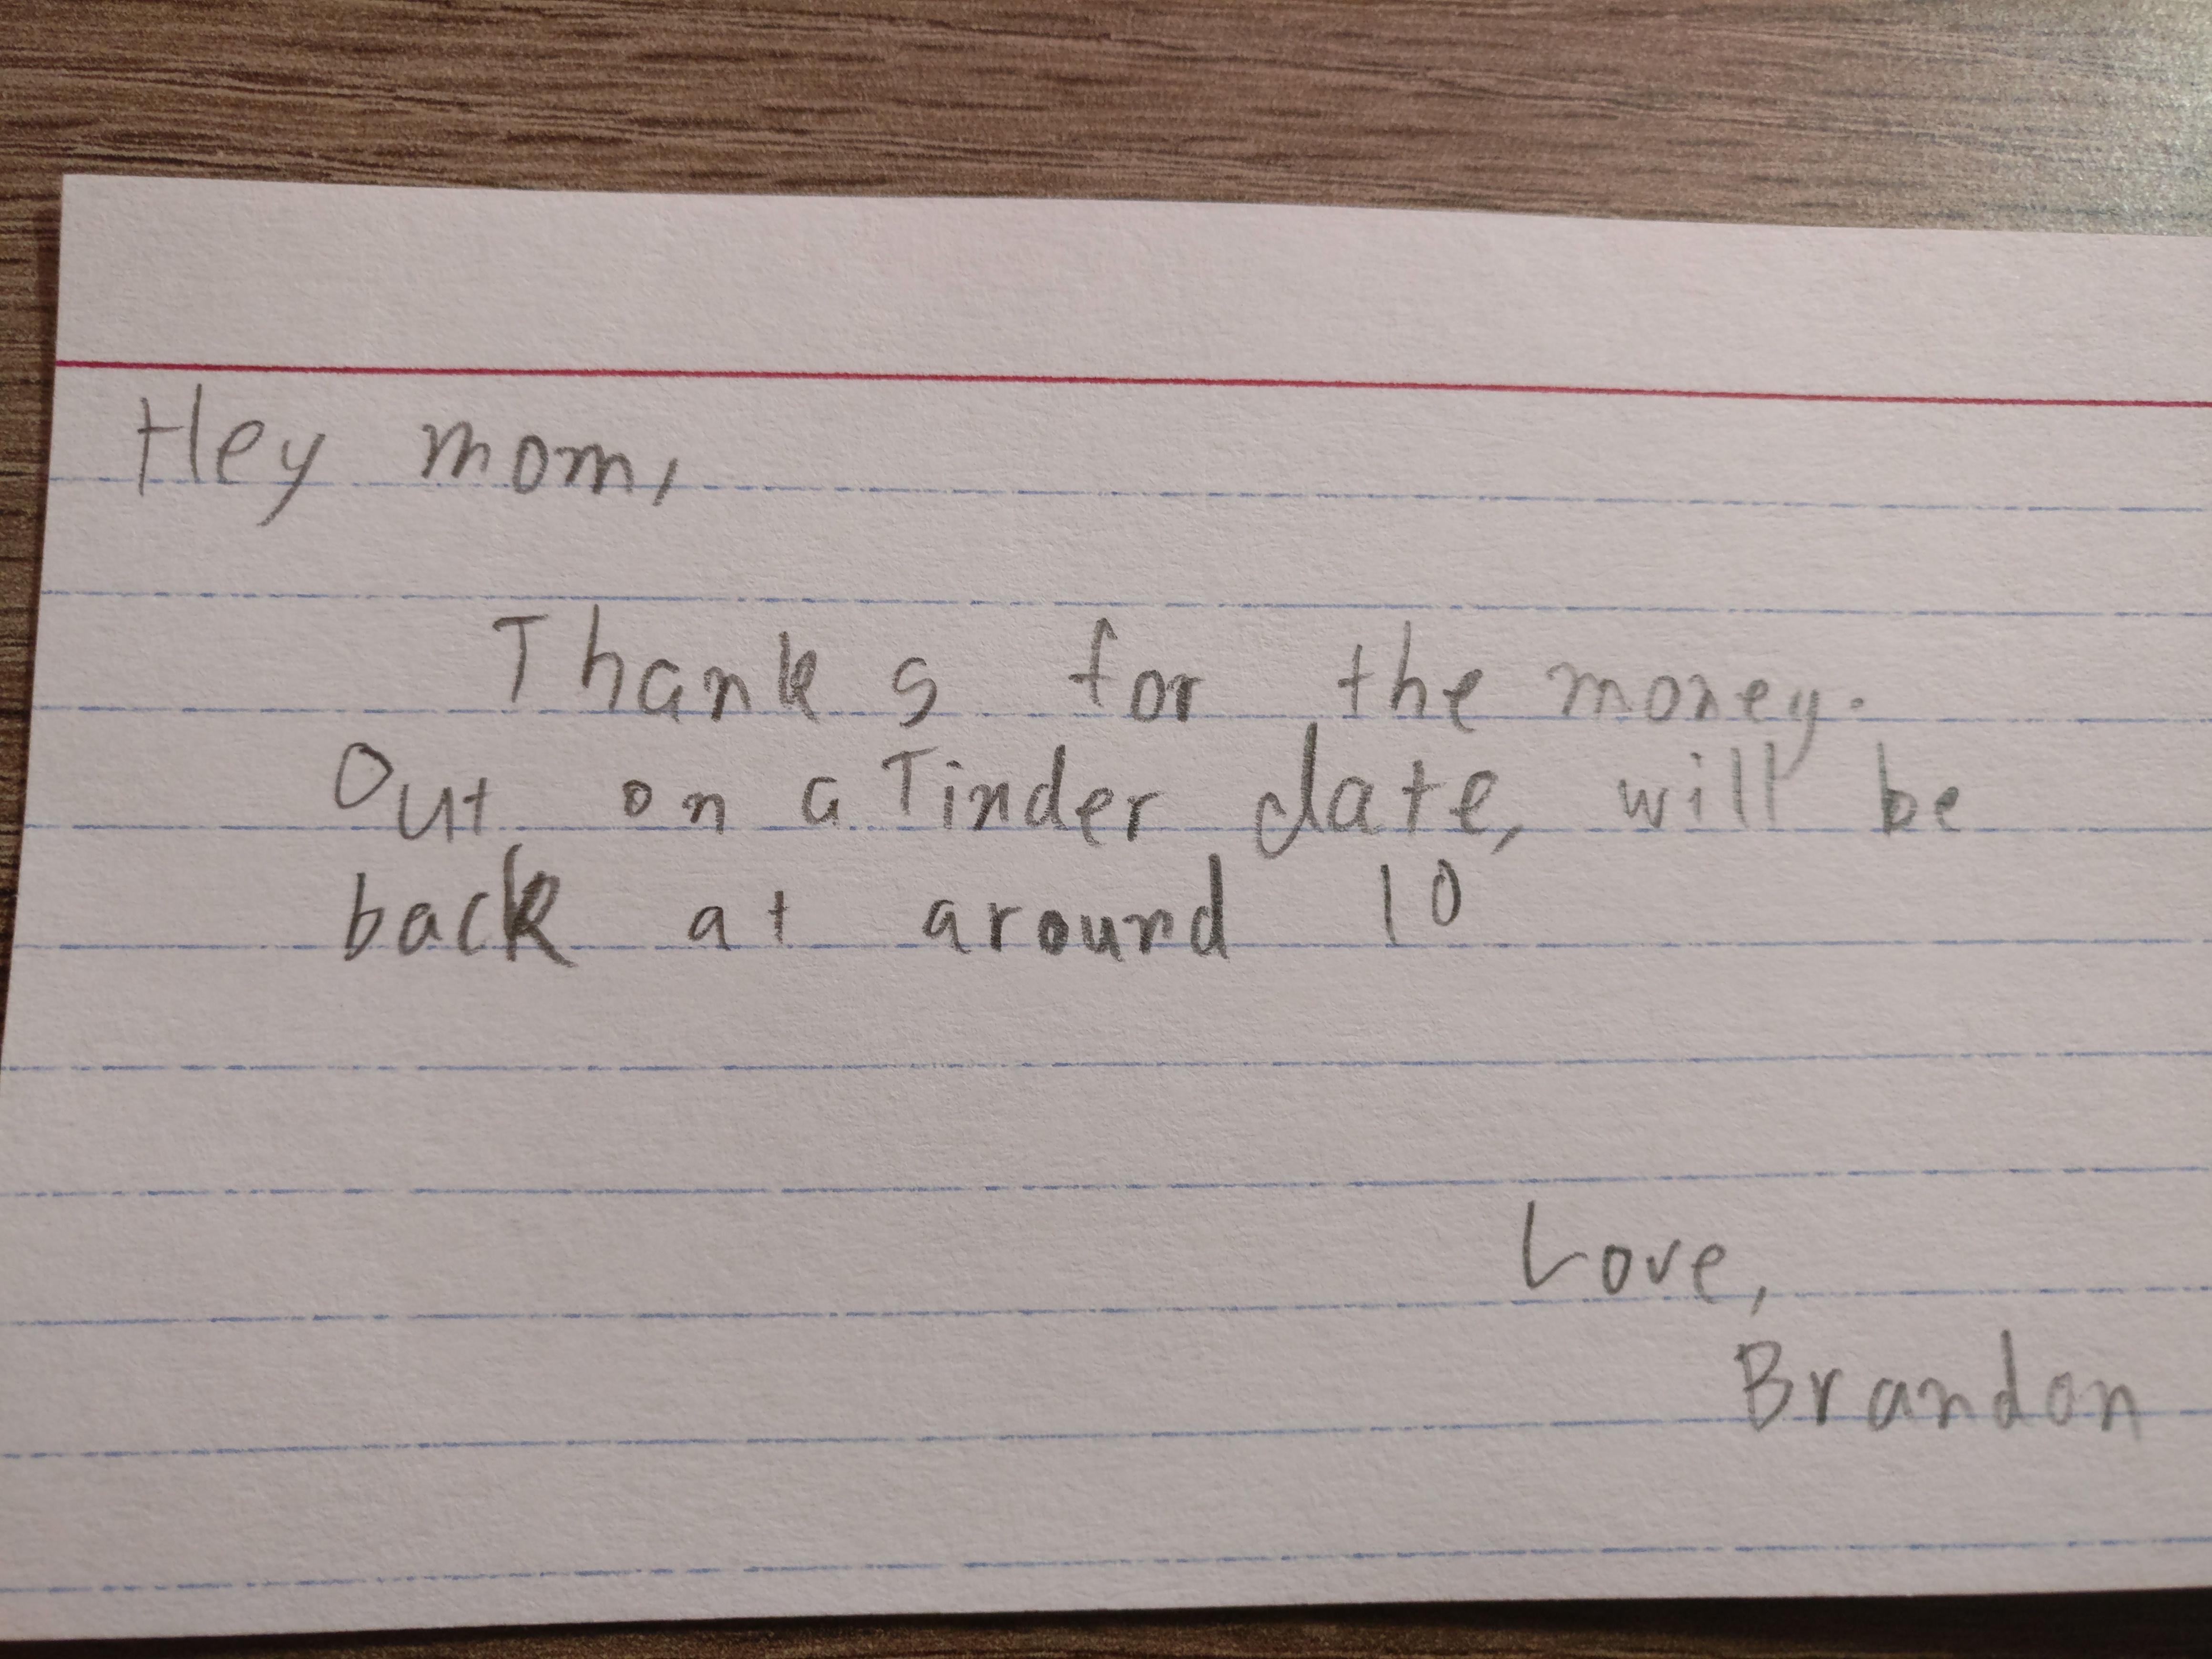 Hey mom,
Thanks for the money.
Out on a Tinder date, will be
back at around 10
Love,
Brandon